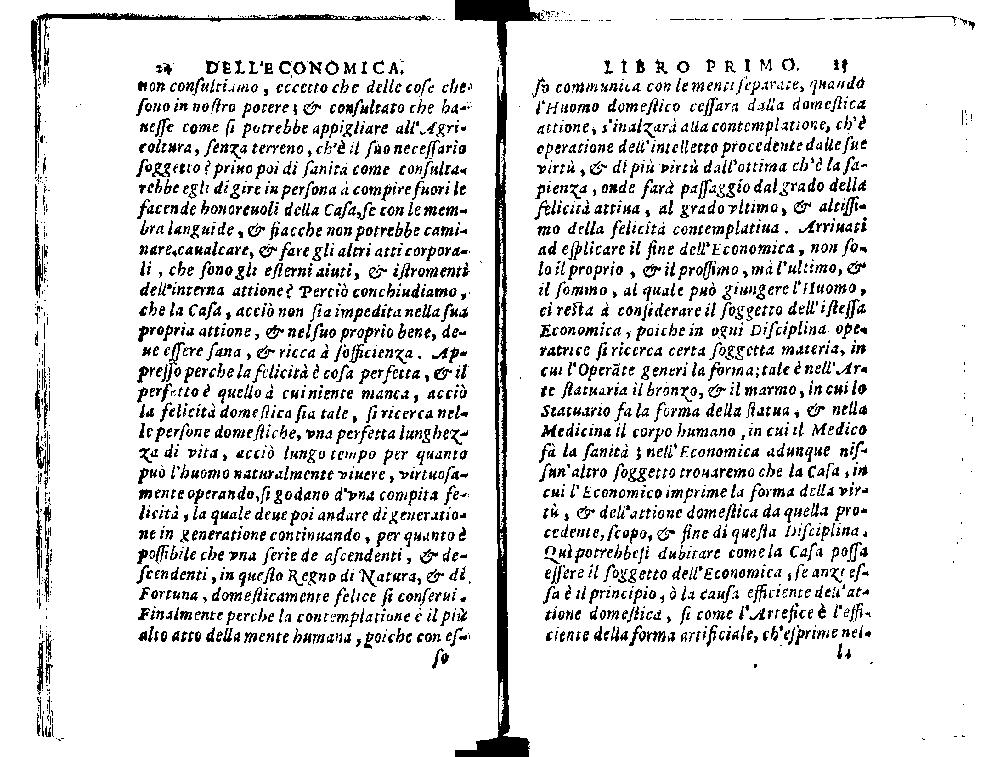 24 DELL'ECONOMICA.
non consultiamo, eccetto che delle cose che
sono in nostro potere; & consultato che ha-
nesse come si potrebbe appigliare all'Agri-
coltura, senza terreno, ch'è il suo necessario
soggetto è priuo poi di sanità come consulta-
rebbe egli di gire in persona à compire fuori le
facende honoreuoli della Casa, se con le mem-
bra languide, & fiacche non potrebbe cami-
nare, caualcare, & fare gli altri atti corpora-
li, che sono gli esterni aiuti, & istromenti
dell'interna attione? Perciò conchiudiamo,
che la Casa, acciò non sia impedita nella sua
propria attione, & nel suo proprio bene, de-
ue essere sana, & ricca à sofficienza. Ap-
presso perche la felicità è cosa perfetta, & il
perfetto è quello à cui niente manca, acciò
la felicità domestica sia tale, si ricerca nel-
le persone domestiche, vna perfetta lunghez-
za di vita, acciò lungo tempo per quanto
può l'huomo naturalmente viuere, virtuosa-
mente operando, si godano d'vna compita fe-
licità, la quale deue poi andare di generatio-
ne in generatione continuando, per quanto è
possibile che vna serie de ascendenti, & de-
scendenti, in questo Regno di Natura, & di
Fortuna, domesticamente felice si conserui.
Finalmente perche la contemplatione è il più
alto atto della mente humana, poiche con es-
so
LIBRO PRIMO. 25
so communica con le menti separate, quando
l'Huomo domestico cessara dalla domestica
attione, s'inalzarà alla contemplatione, ch'è
operatione dell'intelletto procedente dalle sue
virtù, & di più virtù dall'ottima ch'è la sa-
pienza, onde farà passaggio dal grado della
felicità attiua, al grado vltimo, & altissi-
mo della felicità contemplatiua. Arriuati
ad esplicare il fine dell'Economica, non so-
lo il proprio, & il prossimo, mà l'ultimo, &
il sommo, al quale può giungere l'Huomo,
ci resta à considerare il soggetto dell'istessa
Economica, poiche in ogni Disciplina ope-
ratrice si ricerca certa soggetta materia, in
cui l'Operāte generi la forma; tale è nell'Ar-
te statuaria il bronzo, & il marmo, in cui lo
Statuario fa la forma della statua, & nella
Medicina il corpo humano, in cui il Medico
fà la sanità; nell'Economica adunque nis-
sun'altro soggetto trouaremo che la Casa, in
cui l'Economico imprime la forma della vir-
tù, & dell'attione domestica da quella pro-
cedente, scopo, & fine di questa Disciplina.
Quì potrebbesi dubitare come la Casa possa
essere il soggetto dell'Economica, se anzi es-
sa è il principio, ò la causa efficiente dell'at-
tione domestica, si come l'Artefice è l'effi-
ciente della forma artificiale, ch'esprime nel-
la